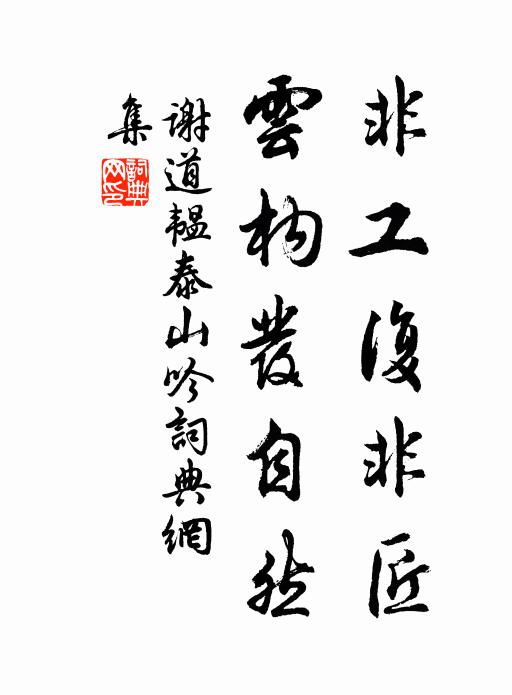 非工復非匠
雲构發自然
謝道韞泰山吟詞典網
集
詞典网印